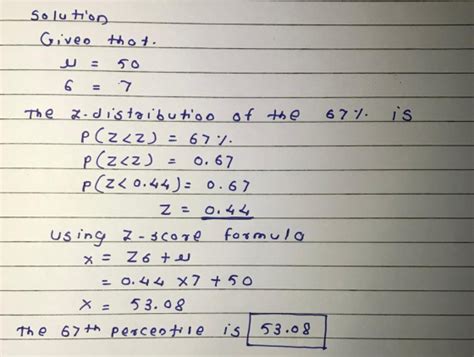 Solution
Given that.
μ = 50
σ = 7
The z-distribution of the 67% is
P(Z<z) = 67%
P(Z<z) = 0.67
P(Z<0.44) = 0.67
Z = 0.44
Using z-score formula
x = Zσ + μ
= 0.44 ×7 + 50
x = 53.08
The 67th percentile is 53.08